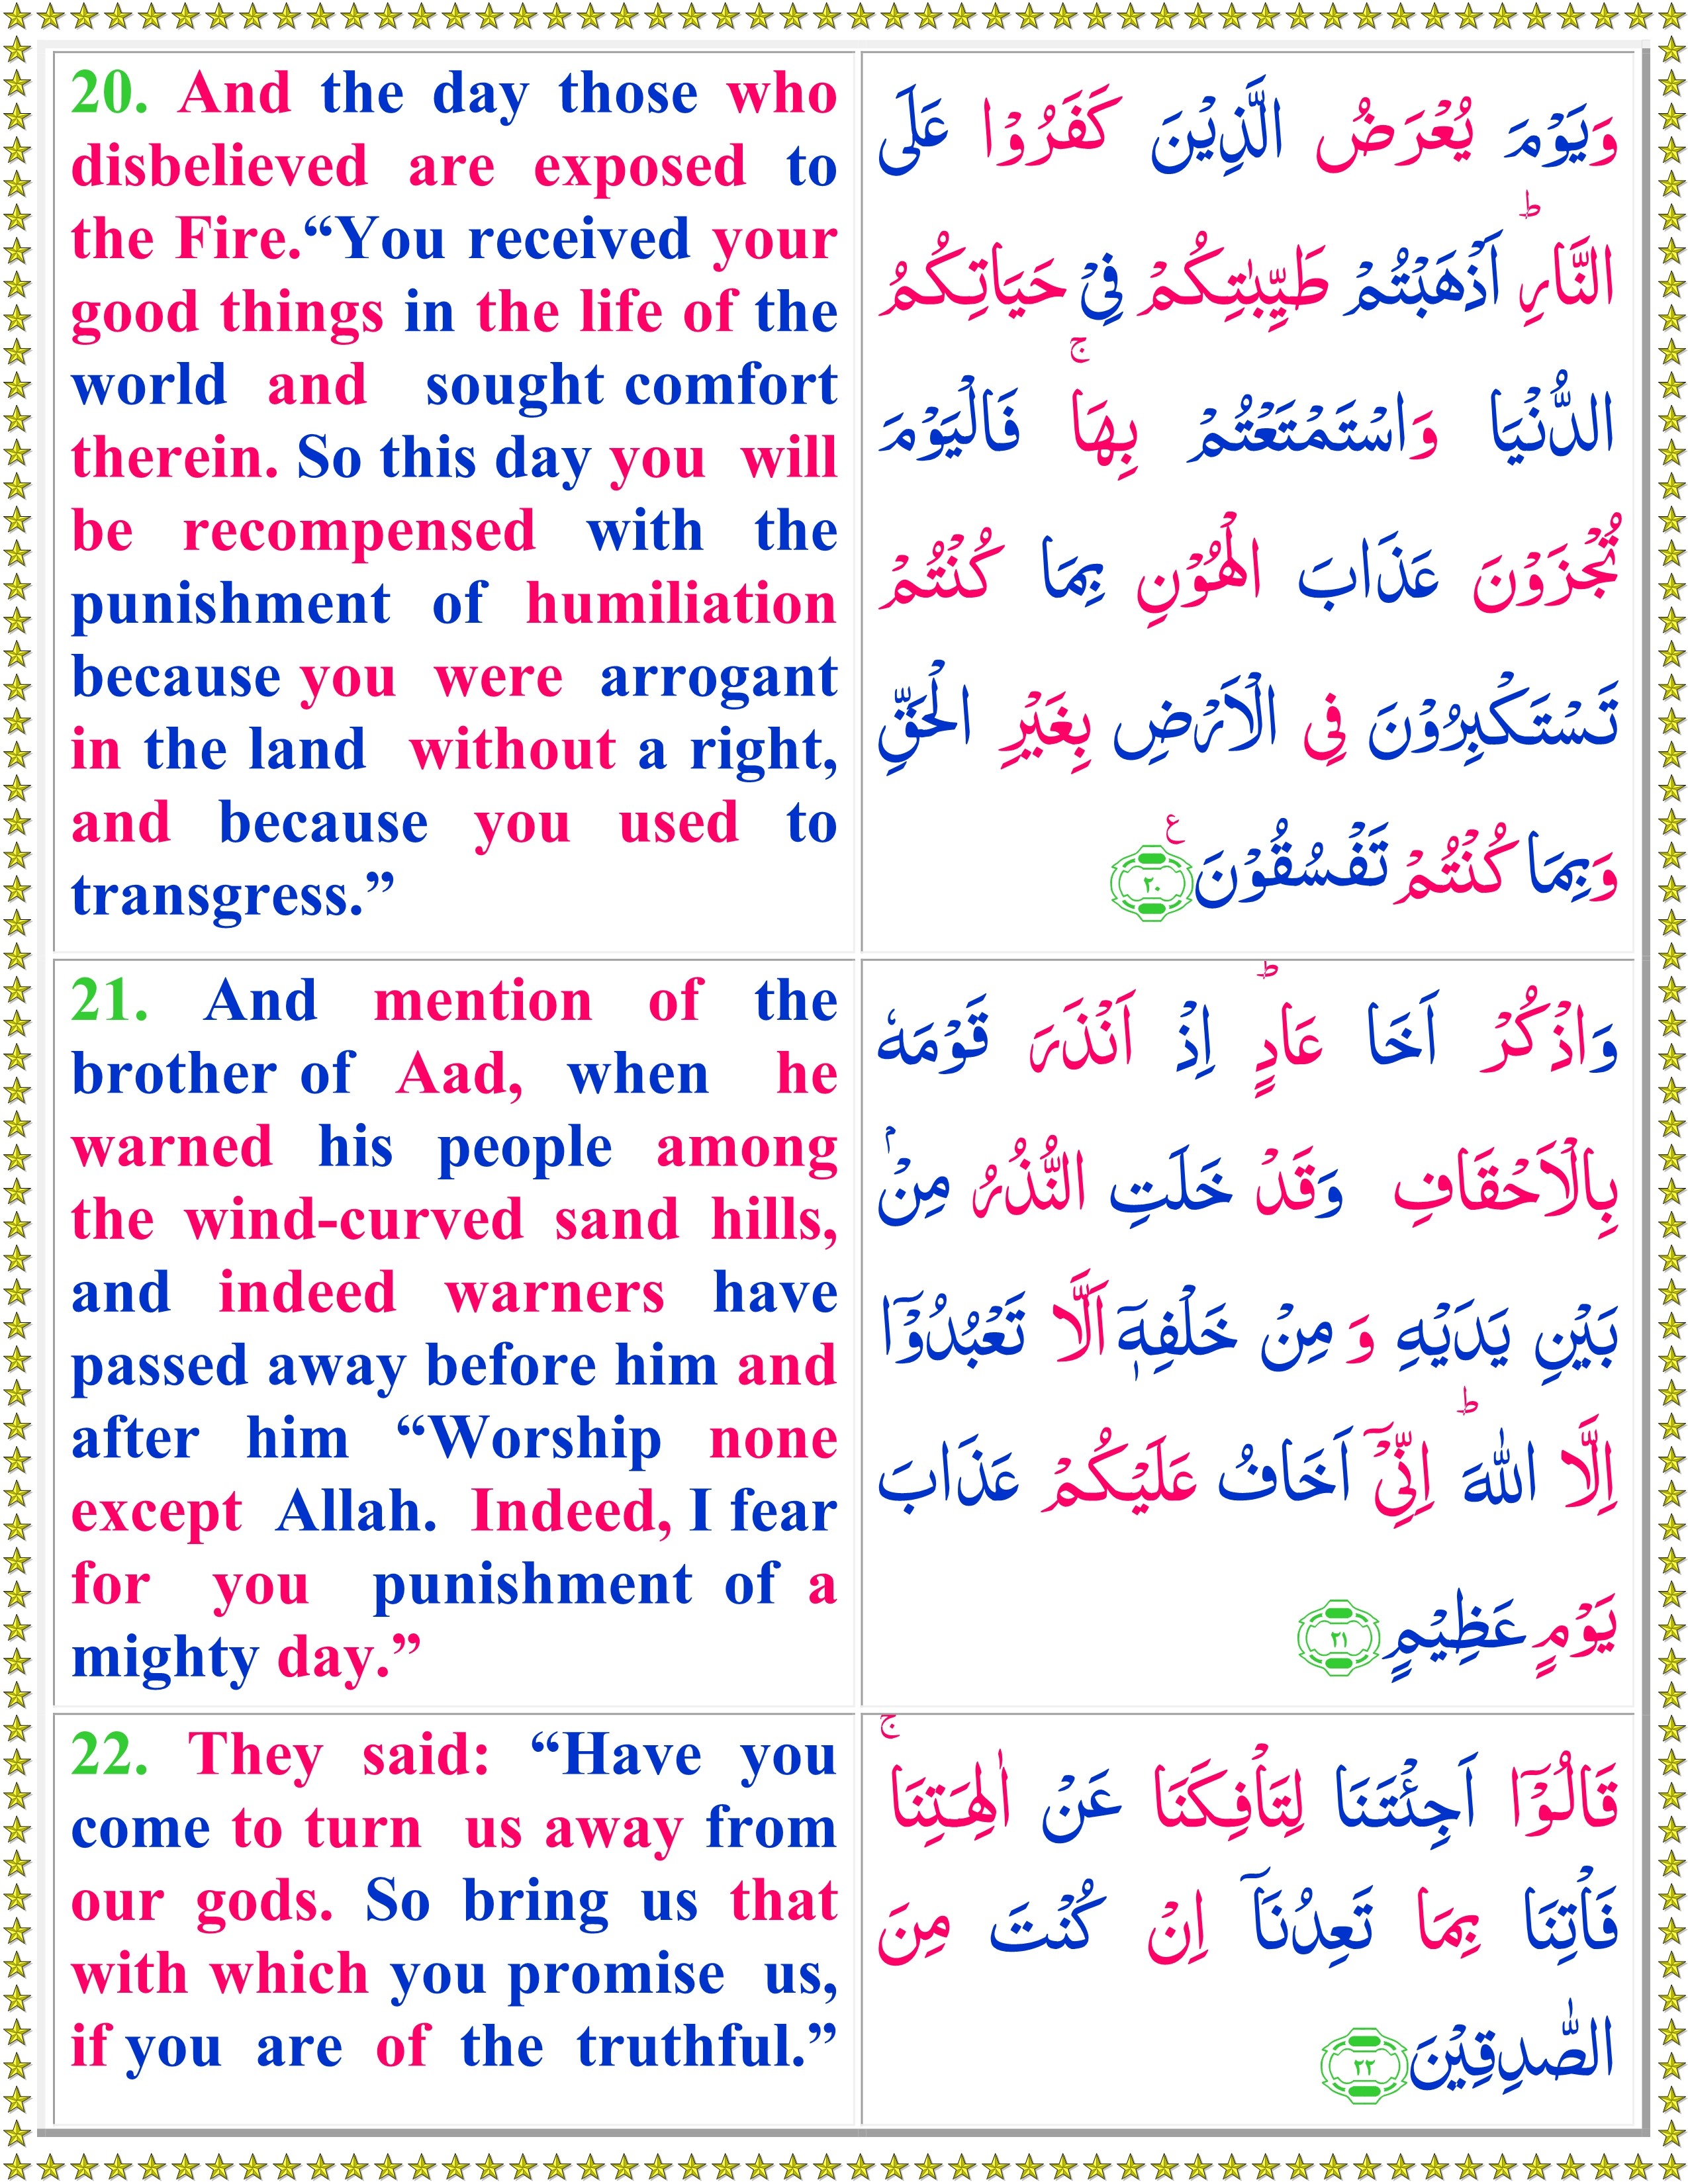 20. And the day those who
disbelieved are exposed to
the Fire.“You received your
good things in the life of the
world and sought comfort
therein. So this day you will
be recompensed with the
punishment of humiliation
because you were arrogant
in the land without a right,
and because you used to
transgress.”
وَيَوْمَ يُعْرَضُ الَّذِيْنَ كَفَرُوْا عَلَى
النَّارِ ؕ اَذْهَبْتُمْ طَيِّبٰتِكُمْ فِىْ حَيَاتِكُمُ
الدُّنْيَا وَاسْتَمْتَعْتُمْ بِهَا ۚ فَالْيَوْمَ
تُجْزَوْنَ عَذَابَ الْهُوْنِ بِمَا كُنْتُمْ
تَسْتَكْبِرُوْنَ فِى الْاَرْضِ بِغَيْرِ الْحَقِّ
وَبِمَا كُنْتُمْ تَفْسُقُوْنَ ع ٢٠
21. And mention of the
brother of Aad, when he
warned his people among
the wind-curved sand hills,
and indeed warners have
passed away before him and
after him “Worship none
except Allah. Indeed, I fear
for you punishment of a
mighty day.”
وَاذْكُرْ اَخَا عَادٍ ؕ اِذْ اَنْذَرَ قَوْمَهٗ
بِالْاَحْقَافِ وَقَدْ خَلَتِ النُّذُرُ مِنْۢ
بَيْنِ يَدَيْهِ وَ مِنْ خَلْفِهٖۤ اَلَّا تَعْبُدُوْۤا
اِلَّا اللّٰهَ ؕ اِنِّىْۤ اَخَافُ عَلَيْكُمْ عَذَابَ
يَوْمٍ عَظِيْمٍ ٢١
22. They said: “Have you
come to turn us away from
our gods. So bring us that
with which you promise us,
if you are of the truthful.”
قَالُوْۤا اَجِئْتَنَا لِتَاْفِكَنَا عَنْ اٰلِهَتِنَا ۚ
فَاْتِنَا بِمَا تَعِدُنَاۤ اِنْ كُنْتَ مِنَ
الصّٰدِقِيْنَ ٢٢